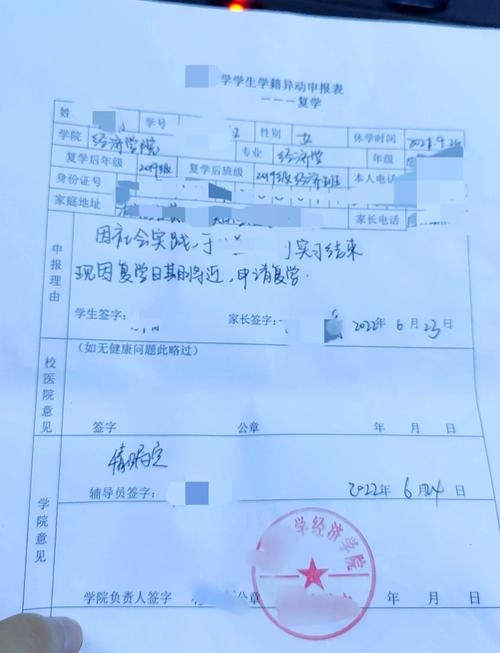 学学生学籍异动申报表
———复学
姓 学号
学院 经济学院 专业 性别 女 休学时间 2021.9.26
复学后年级 2019级 复学后班级 2019级经济班 经济学 年级
身份证号 本人电话
家庭地址 家长电话
申报理由
因社会实践于 实习结束
现因复学日期将近,申请复学.
学生签字: 家长签字: 2022年6月23日
校医院意见
(如无健康问题此略过)
签字 公章 年 月 日
学院意见
情况属实
辅导员签字: 2022年6月24日
学经济学院
学院负责人签字 公章 年 月 日